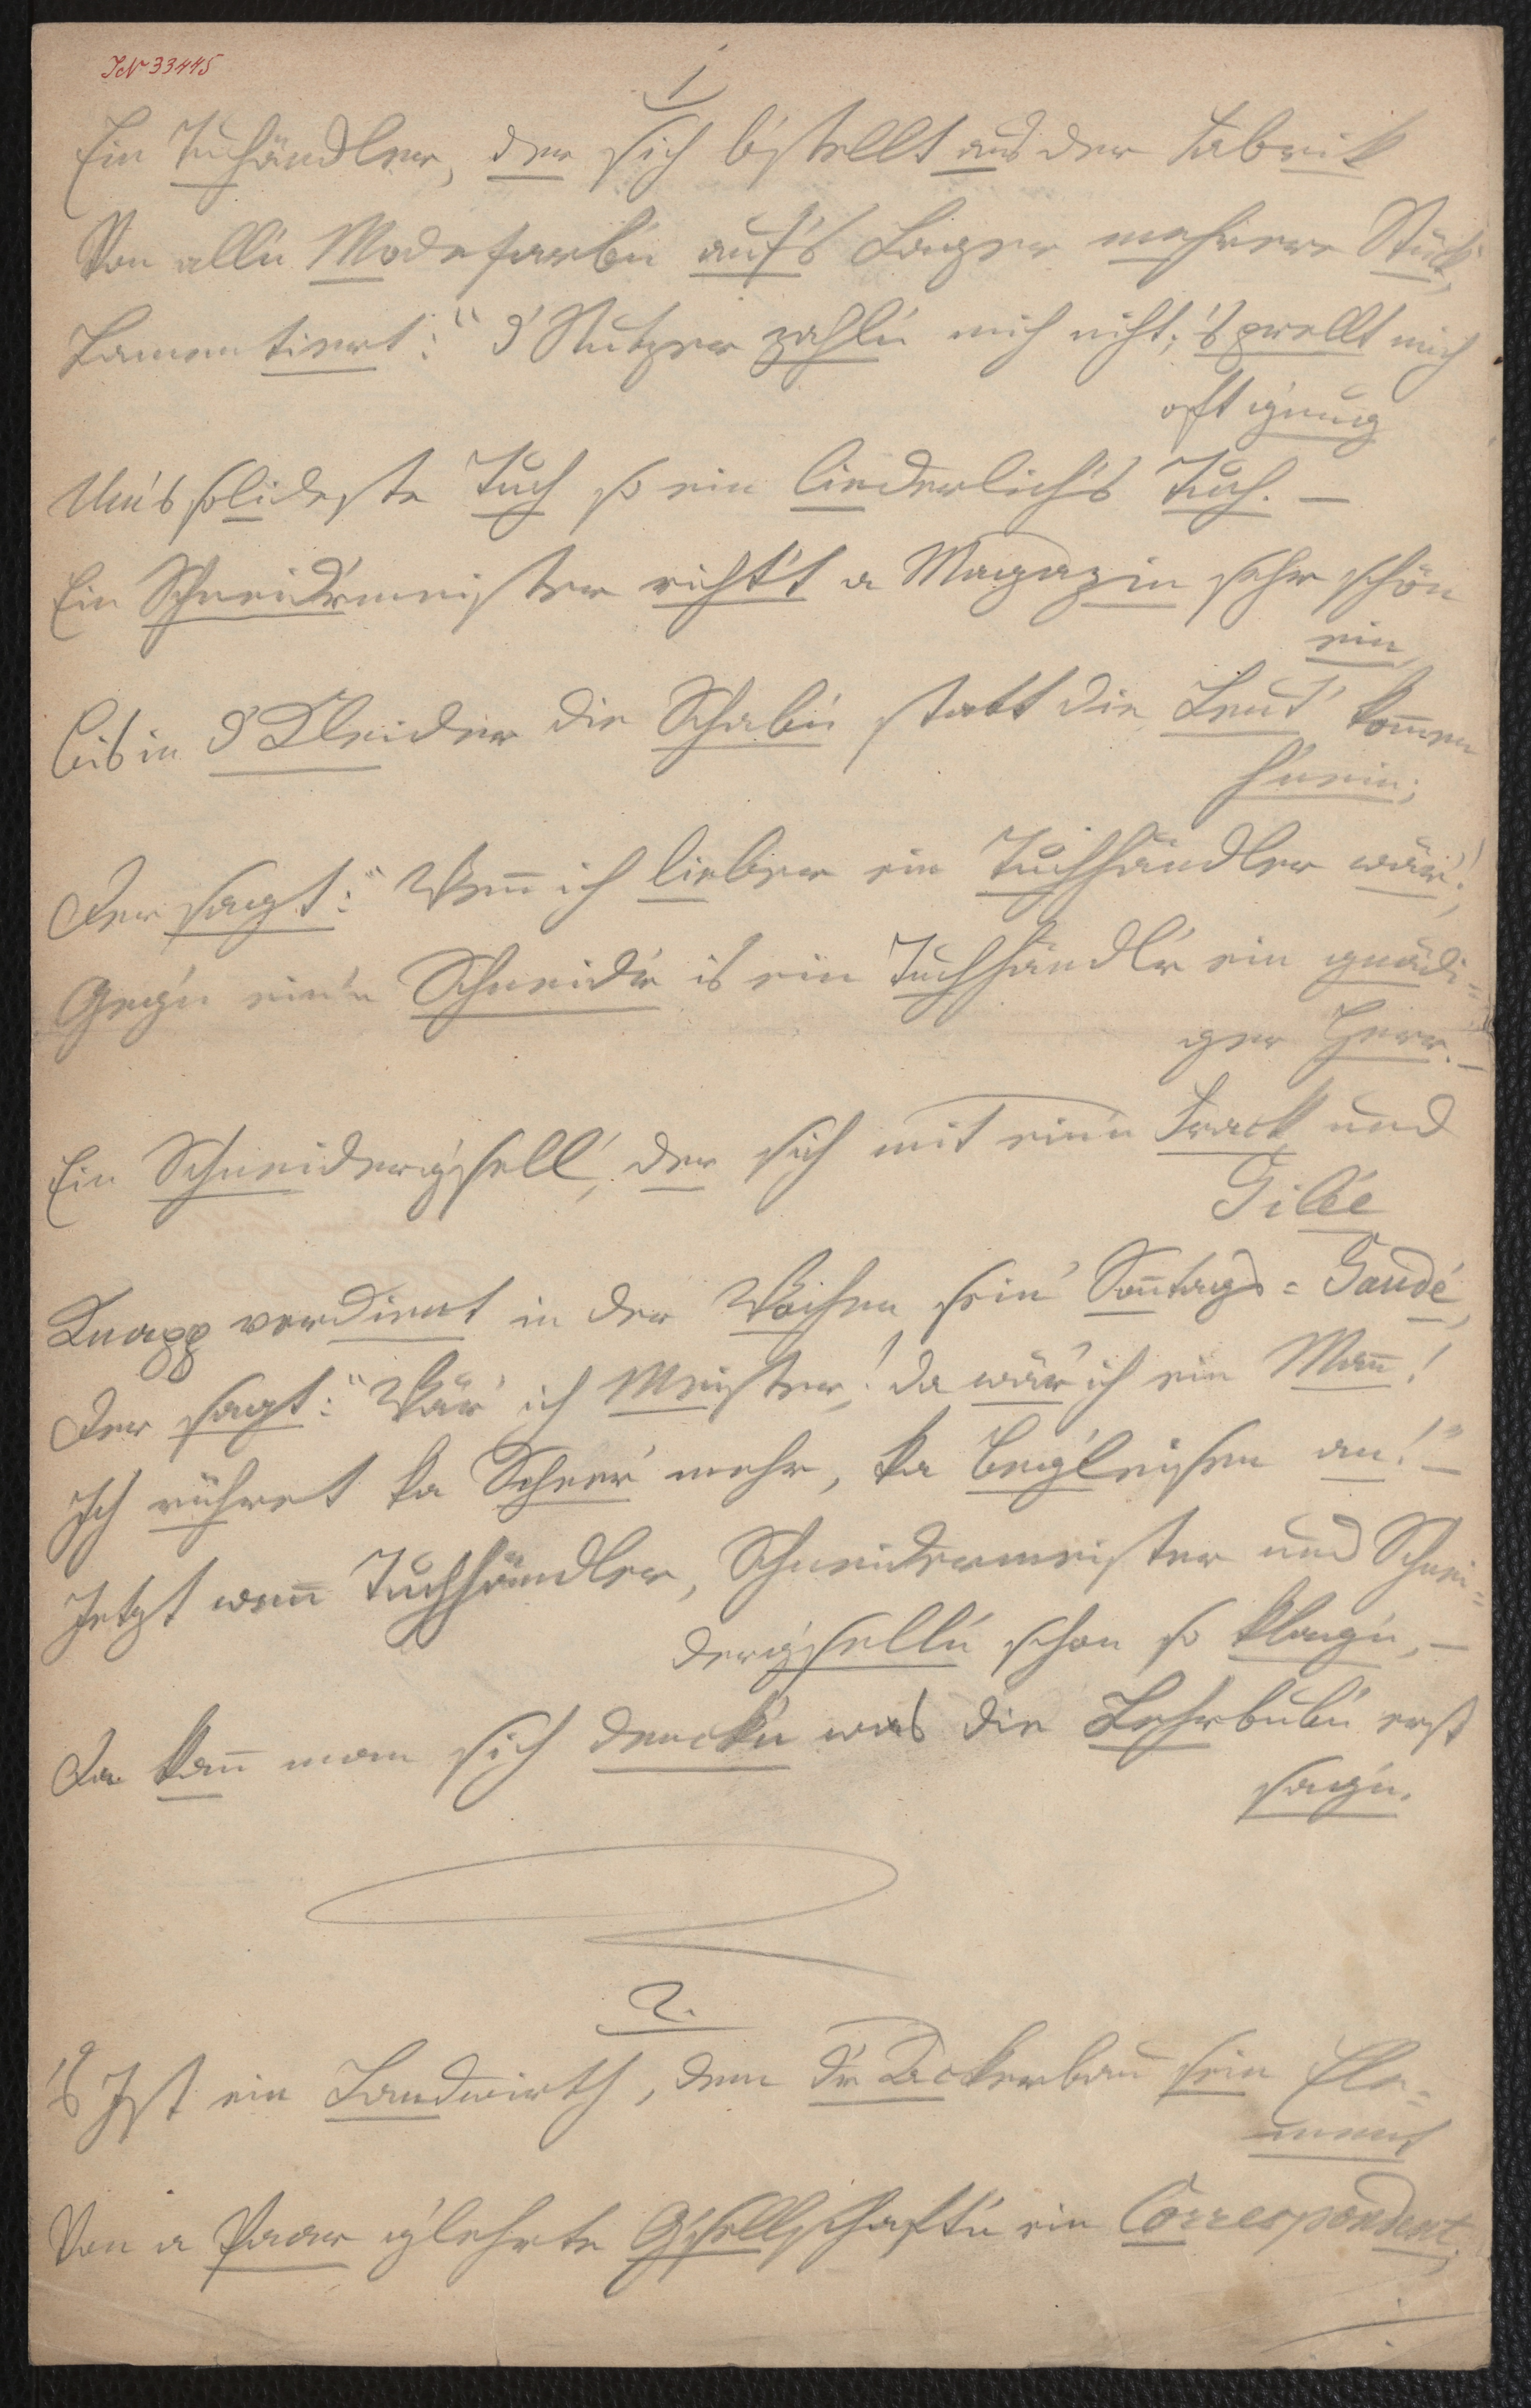 IN 33445
1
Ein Tuchändler, der sich b'stellt aus der Fabrik
Von alle'n Modefarbe'n auf's Lager mehrere Stück,
Lamentiert: "d' Stutzer zahle'n mich nicht; 's prellt mich
oft g'nug
Um's solideste Tuch so ein liederlich's Tuch. –
Ein Schneid'rmeister richt't a Magazin sehr schön
ein,
Bis in d' Kleider die Schabe'n statt die Leut' kom̄en
h'nein;
Der sagt: "Wen̄ ich lieber ein Tuchhändler wär'!
Geg'n ein'n Schneid'r is ein Tuchhändl'r ein gnädi=
ger Herr. –
Ein Schneiderg'sell', der sich mit ein'n Frack und
Gilée
Knapp verdient in der Wochen sein' Son̄tags=Gaudé,
Der sagt: "Wär' ich Meister! da wär' ich ein Man̄!
Ich rühret ka Scheer' mehr, ka Beg'leisen an!" –
Jetzt wen̄ Tuchhändler, Schneidermeister und Schnei=
derg'selle'n schon so klag'n, –
Da kan̄ man sich denck'n was die Lehrbub'n erst
sag'n.
2.
's Ist ein Landwirth, dem d'r Ackerbau sein Ele=
ment
Von a Paar g'lehrte G'sellschaft'n ein Correspondent;